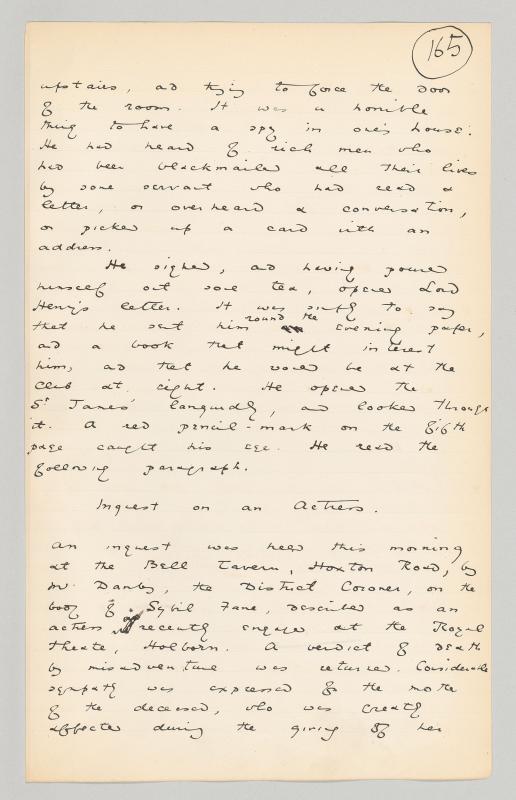 165
upstairs, and trying to force the door
of the room. It was a horrible
thing to have a spy in one's house.
He had heard of rich men who
had been blackmailed all their lives
by some servant who had read a
letter, or overheard a conversation,
or picked up a card with an
address.
He sighed, and having poured
himself out some tea, opened Lord
Henry's letter. It was simply to say
round the
that he sent him evening paper,
and a book that might interest
him, and that he would be at the
club at eight. He opened the
St James' languidly, and looked through
it. A red pencil-mark on the fifth
page caught his eye. He read the
following paragraph.
Inquest on an Actress.
An inquest was held this morning
at the Bell Tavern, Hoxton Road, by
Mr Danby, the District Coroner, on the
body of Sybil Fane, described as an
actress recently engaged at the Royal
Theatre, Holborn. A verdict of death
by misadventure was returned. Considerable
sympathy was expressed for the mother
of the deceased, who was greatly
affected during the giving of her